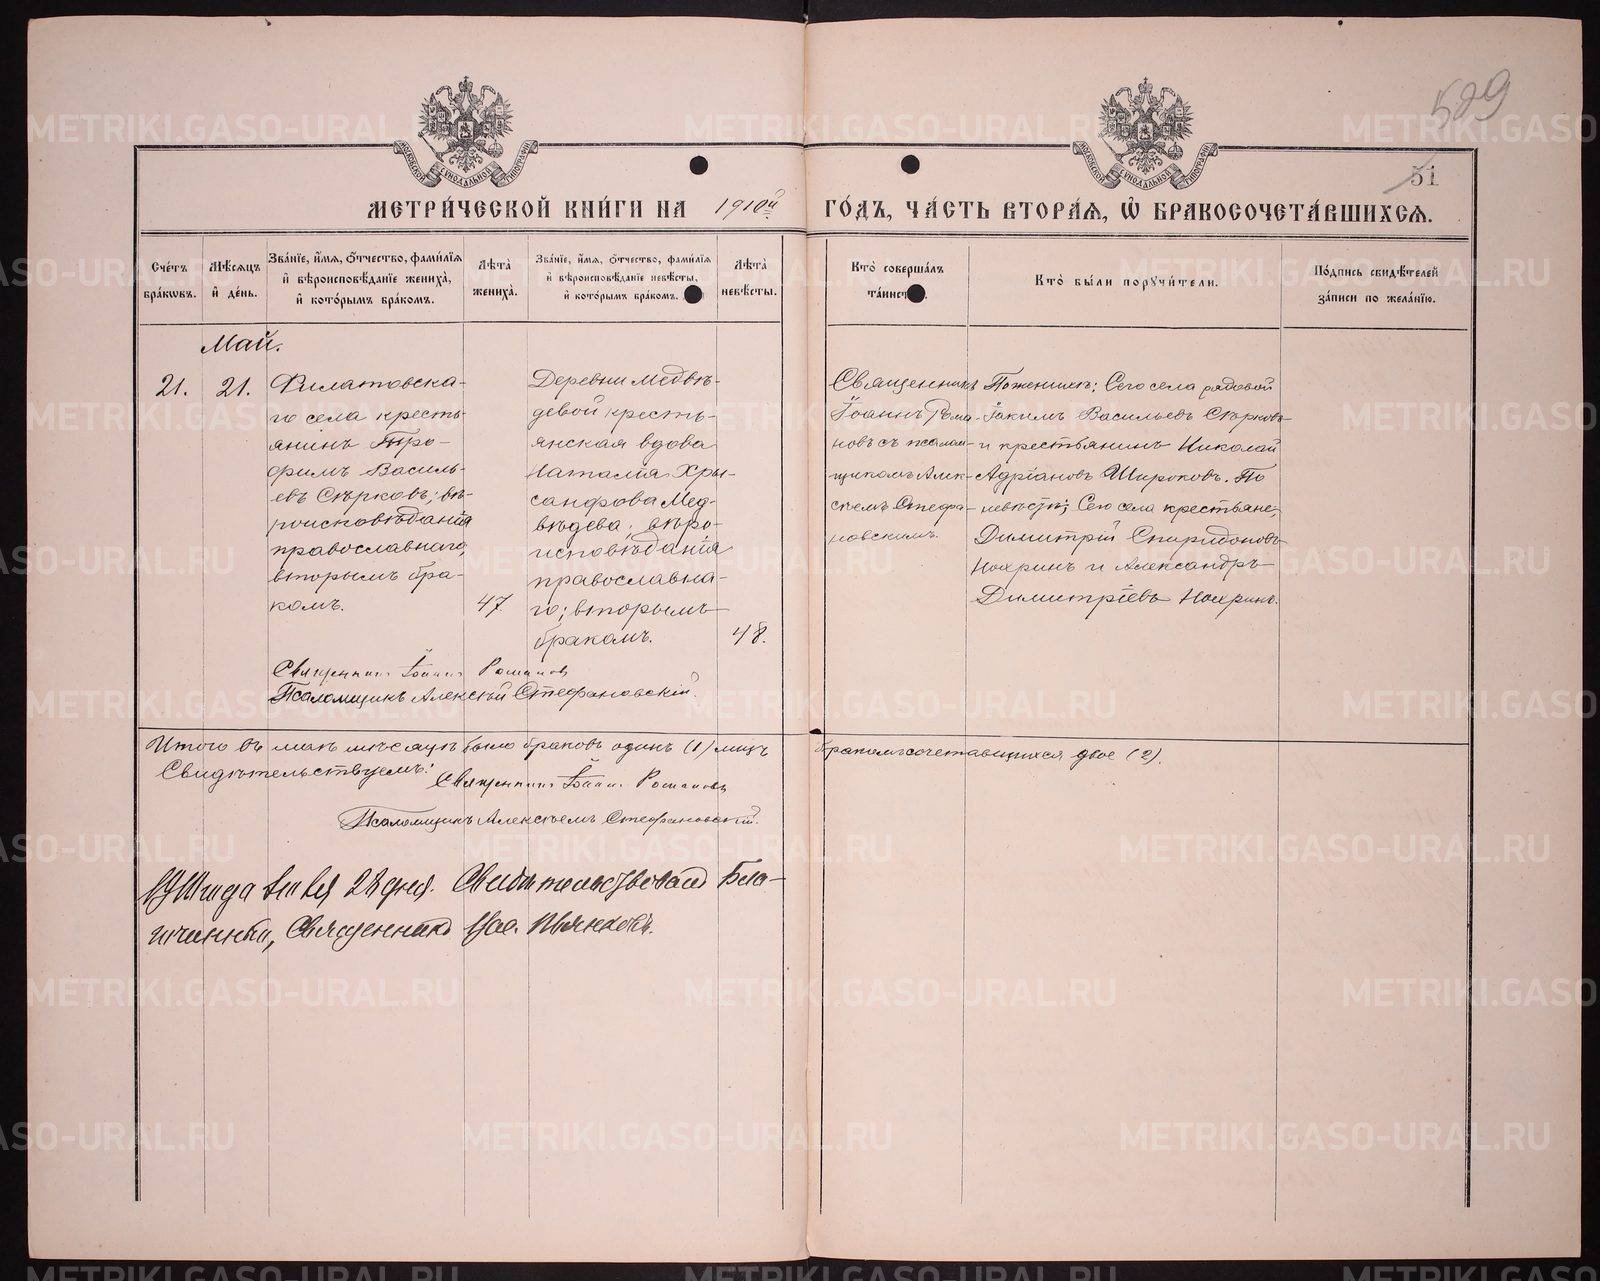 529
51
МОСКОВСКОЙ СѴНОДАЛЬНОЙ ТИПОГРАФИИ
МОСКОВСКОЙ СѴНОДАЛЬНОЙ ТИПОГРАФИИ
МЕТРИ́ЧЕСКОЙ КНИ́ГИ НА 1910й ГО́ДЪ, ЧА́СТЬ ВТОРА́Ѧ, Ѽ БРАКОСОЧЕТА́ВШИХСѦ.
Сче́тъ бра́кѡвъ.
Мѣ́сѧцъ и҆ де́нь.
Зва́нїе, и҆́мѧ, ѻ҆́тчество, фами́лїѧ и҆ вѣроисповѣ́данїе жениха̀, и҆ кото́рымъ бра́комъ.
Лѣ́та жениха̀.
Зва́нїе, и҆́мѧ, ѻ҆́тчество, фами́лїѧ и҆ вѣроисповѣ́данїе невѣ́сты, и҆ кото́рымъ бра́комъ.
Лѣ́та невѣ́сты.
Кто̀ соверша́лъ та́инст
Кто̀ бы́ли порꙋчи́тели.
По́дпись свидѣ́телей за́писи по жела́нїю.
Май.
21.
21.
Филатовска-
го села кресть-
янинъ Тро-
фимъ Василь-
евъ Сѣрковъ; вѣ-
роисповѣданія
православнаго,
вторымъ бра-
комъ.
47
Деревни Медвѣ-
девой кресть-
янская вдова
Наталія Хры-
санфова Мед-
вѣдева; вѣро-
исповѣданія
православна-
го; вторымъ
бракомъ.
48.
Священникъ
Іоаннъ Рома-
новъ съ псалом-
щикомъ Алек-
сѣемъ Стефа-
новскимъ.
По женихѣ; Сего села рядовой
Іакимъ Васильевъ Сѣрковъ
и крестьянинъ Николай
Адріановъ Широковъ. По
невѣстѣ; Сего села крестьяне,
Димитрій Спиридоновъ
Нохринъ и Александръ
Димитріевъ Нохринъ.
Священникъ Іоаннъ Романовъ
Псаломщикъ Алексѣй Стефановскій.
Итого въ маѣ мѣсяцѣ было браковъ одинъ (1) лицъ бракомъ сочетавшихся двое (2).
Свидѣтельствуемъ:
Священникъ Іоаннъ Романовъ
Псаломщикъ Алексѣемъ Стефановскій.
года 28 дня. Свидѣтельствовалъ Бла-
гочинный, Священникъ
METRIKI.GASO-URAL.RU